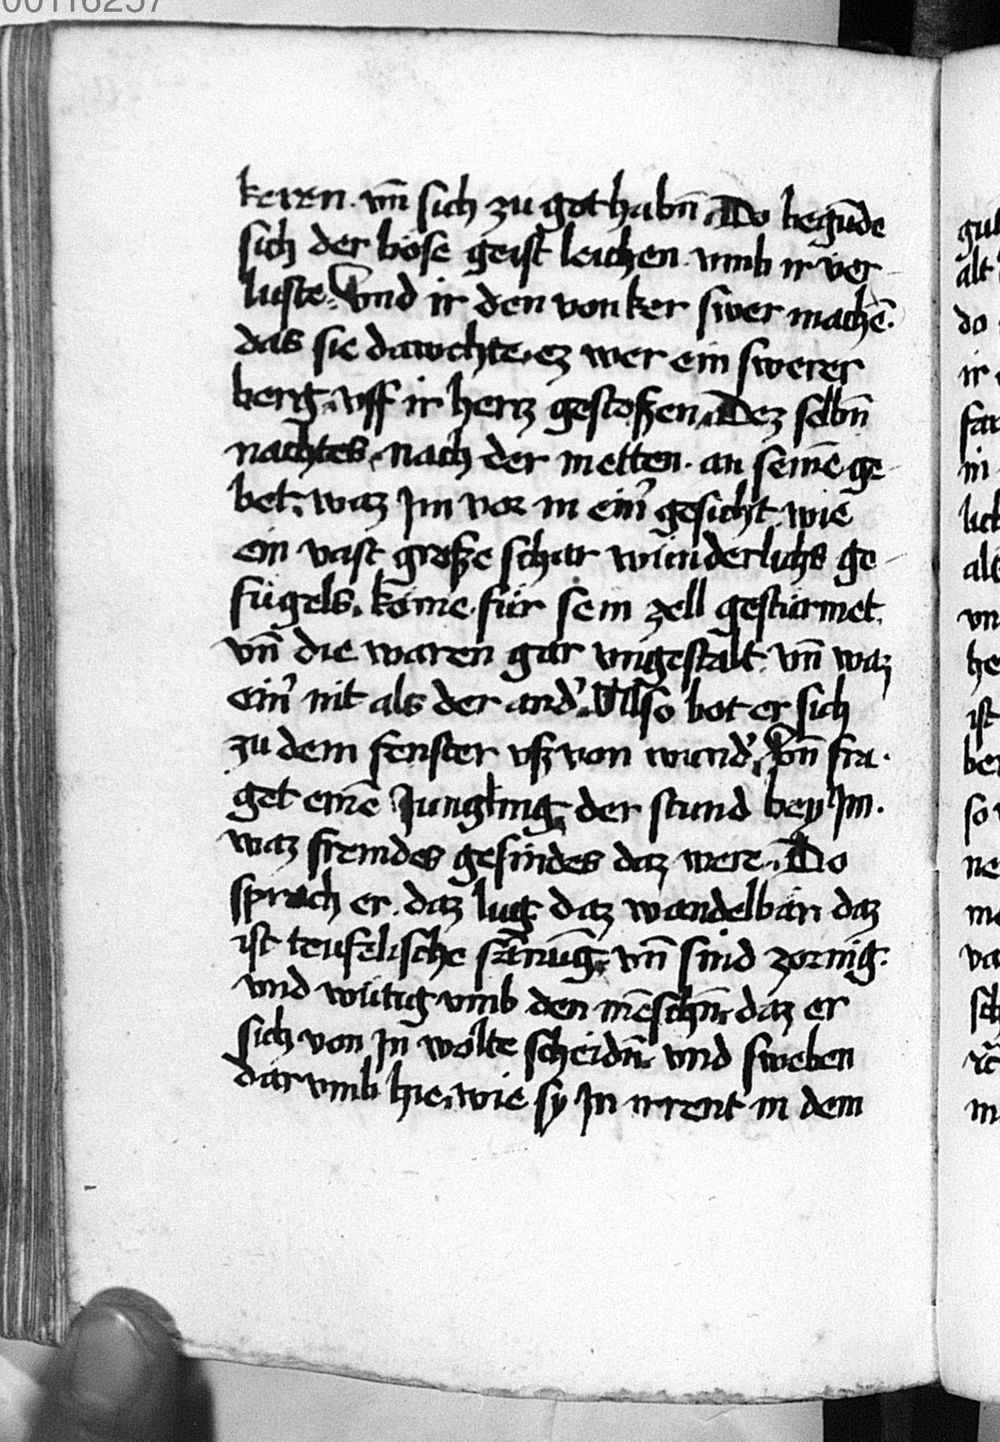 00116257
keren. vn̄ sich zu got habn̄ Do begūde
sich der böse geist leichen vmb ir ver
luste. Vnd ir den von ker swer machē.
das sie dawchte. ez wer ein swerer
berg. vff ir hertz gestoßen. Dez selbn̄
nachtes. nach der metten. an seinē ge
bet. waz Jm vor in ein̓ gesicht. wie
ein vast große schar wunderlichs ge
fügels. keme für sein zell gestürmet.
vn̄ die waren gar vngestalt. vn̄ waz
ein̓ nit als der and̓. Also bot er sich
zu dem fenster vß von wund̓. Vn̄ fra
get einē Jungling. der stund bey Jm.
waz fremdes gesindes daz were. Do
sprach er. daz lug daz wandelbar daz
ist teufelische vn̄ sind zornig.
vnd wütig vmb den mēschn̄. daz er
sich von Jn wolte scheidn̄. vnd sweben
dar vmb hie. wie sy Jn irrent in dem
alt
do
ir
in
alt
vn
he
ist
ber
so
ne
m